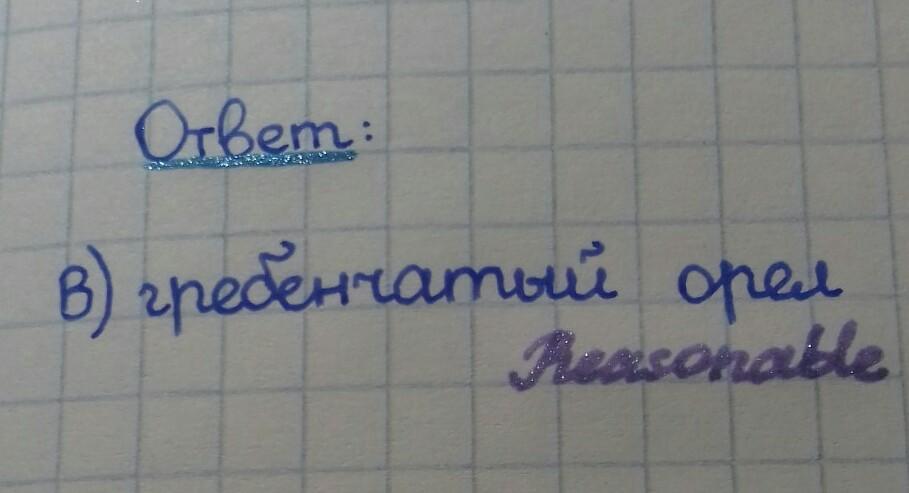 Ответ:
В) гребенчатый орел
Reasonable